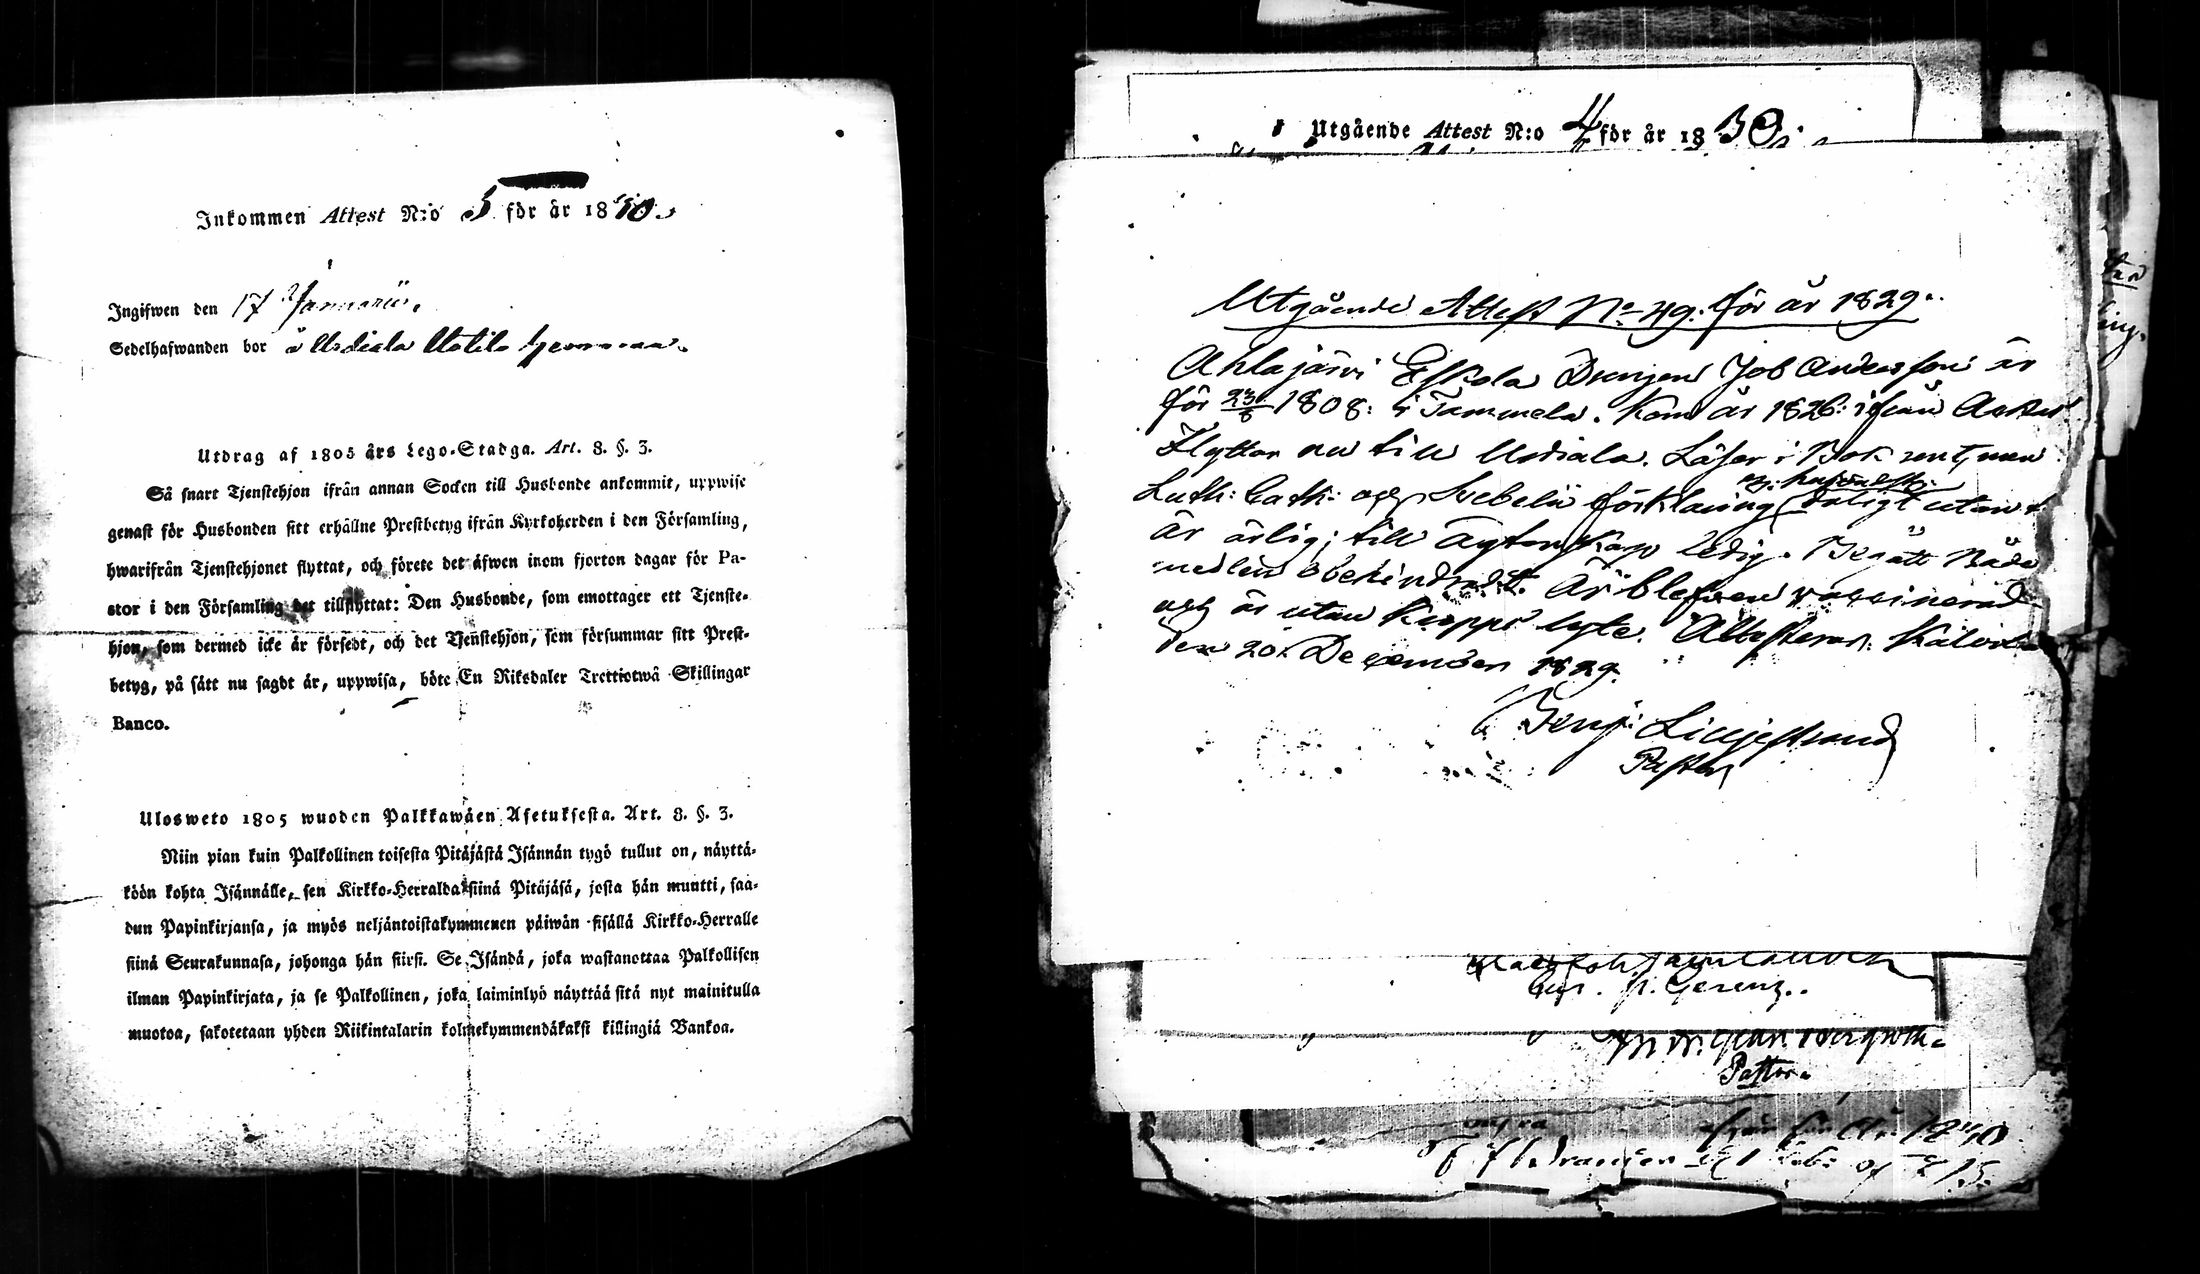 Inkommen Attest N:o 5 för år 1830.
Ingifwen den 17 Januarii.
Sedelhafwanden bor å Urdiala Notila hemman.
Utdrag af 1805 års Lego-Stadga. Art. 8. §. 3.
Så snart Tjenstehjon ifrån annan Socken till Husbonde ankommit, uppwise
genast för Husbonden sitt erhållne Prestbetyg ifrån Kyrkoherden i den Församling,
hwarifrån Tjenstehjonet flyttat, och förete det äfwen inom fjorton dagar för Pa-
stor i den Församling det tillflyttat: Den Husbonde, som emottager ett Tjenste-
hjon, som dermed icke är försedt, och det Tjenstehjon, som försummar sitt Prest-
betyg, på sätt nu sagdt är, uppwisa, böte En Riksdaler Trettiotwå Skillingar
Banco.
Ulosweto 1805 wuoden Palkkawäen Asetuksesta. Art. 8. §. 3.
Niin pian kuin Palkollinen toisesta Pitäjästä Isännän tygö tullut on, näyttä-
köön kohta Isännälle, sen Kirkko-Herralda siinä Pitäjäsä, josta hän muutti, saa-
dun Papinkirjansa, ja myös neljäntoistakymmenen päiwän sisällä Kirkko-Herralle
siinä Seurakunnasa, johonga hän siirsi. Se Isändä, joka wastanottaa Palkollisen
ilman Papinkirjata, ja se Palkollinen, joka laiminlyö näyttää sitä nyt mainitulla
muotoa, sakotetaan yhden Riikintalarin kolmekymmendäkaksi killingiä Bankoa.
Utgående Attest N:o 4 för år 1830.
Utgående Attest No 49. för år 1829.
Ahlajärvi Eskola Drengen Job Andersson är
för 23/6 1808: i Tammela. Kom år 1826: ifrån
Flyttar nu till Urdiala. Läser i Bok rent, men
Luth: Cath: och Svebelii förklaring dåligt utan
är ärlig; till Ägtenskap ledig. Begått Nåde
medlen obehindradt. Är blefwen vaccinerad
och är utan kropps lyte. Attesterar. Kälvi
den 20. December 1829.
Benj: Lilljestrand
Pastor
Pastor.